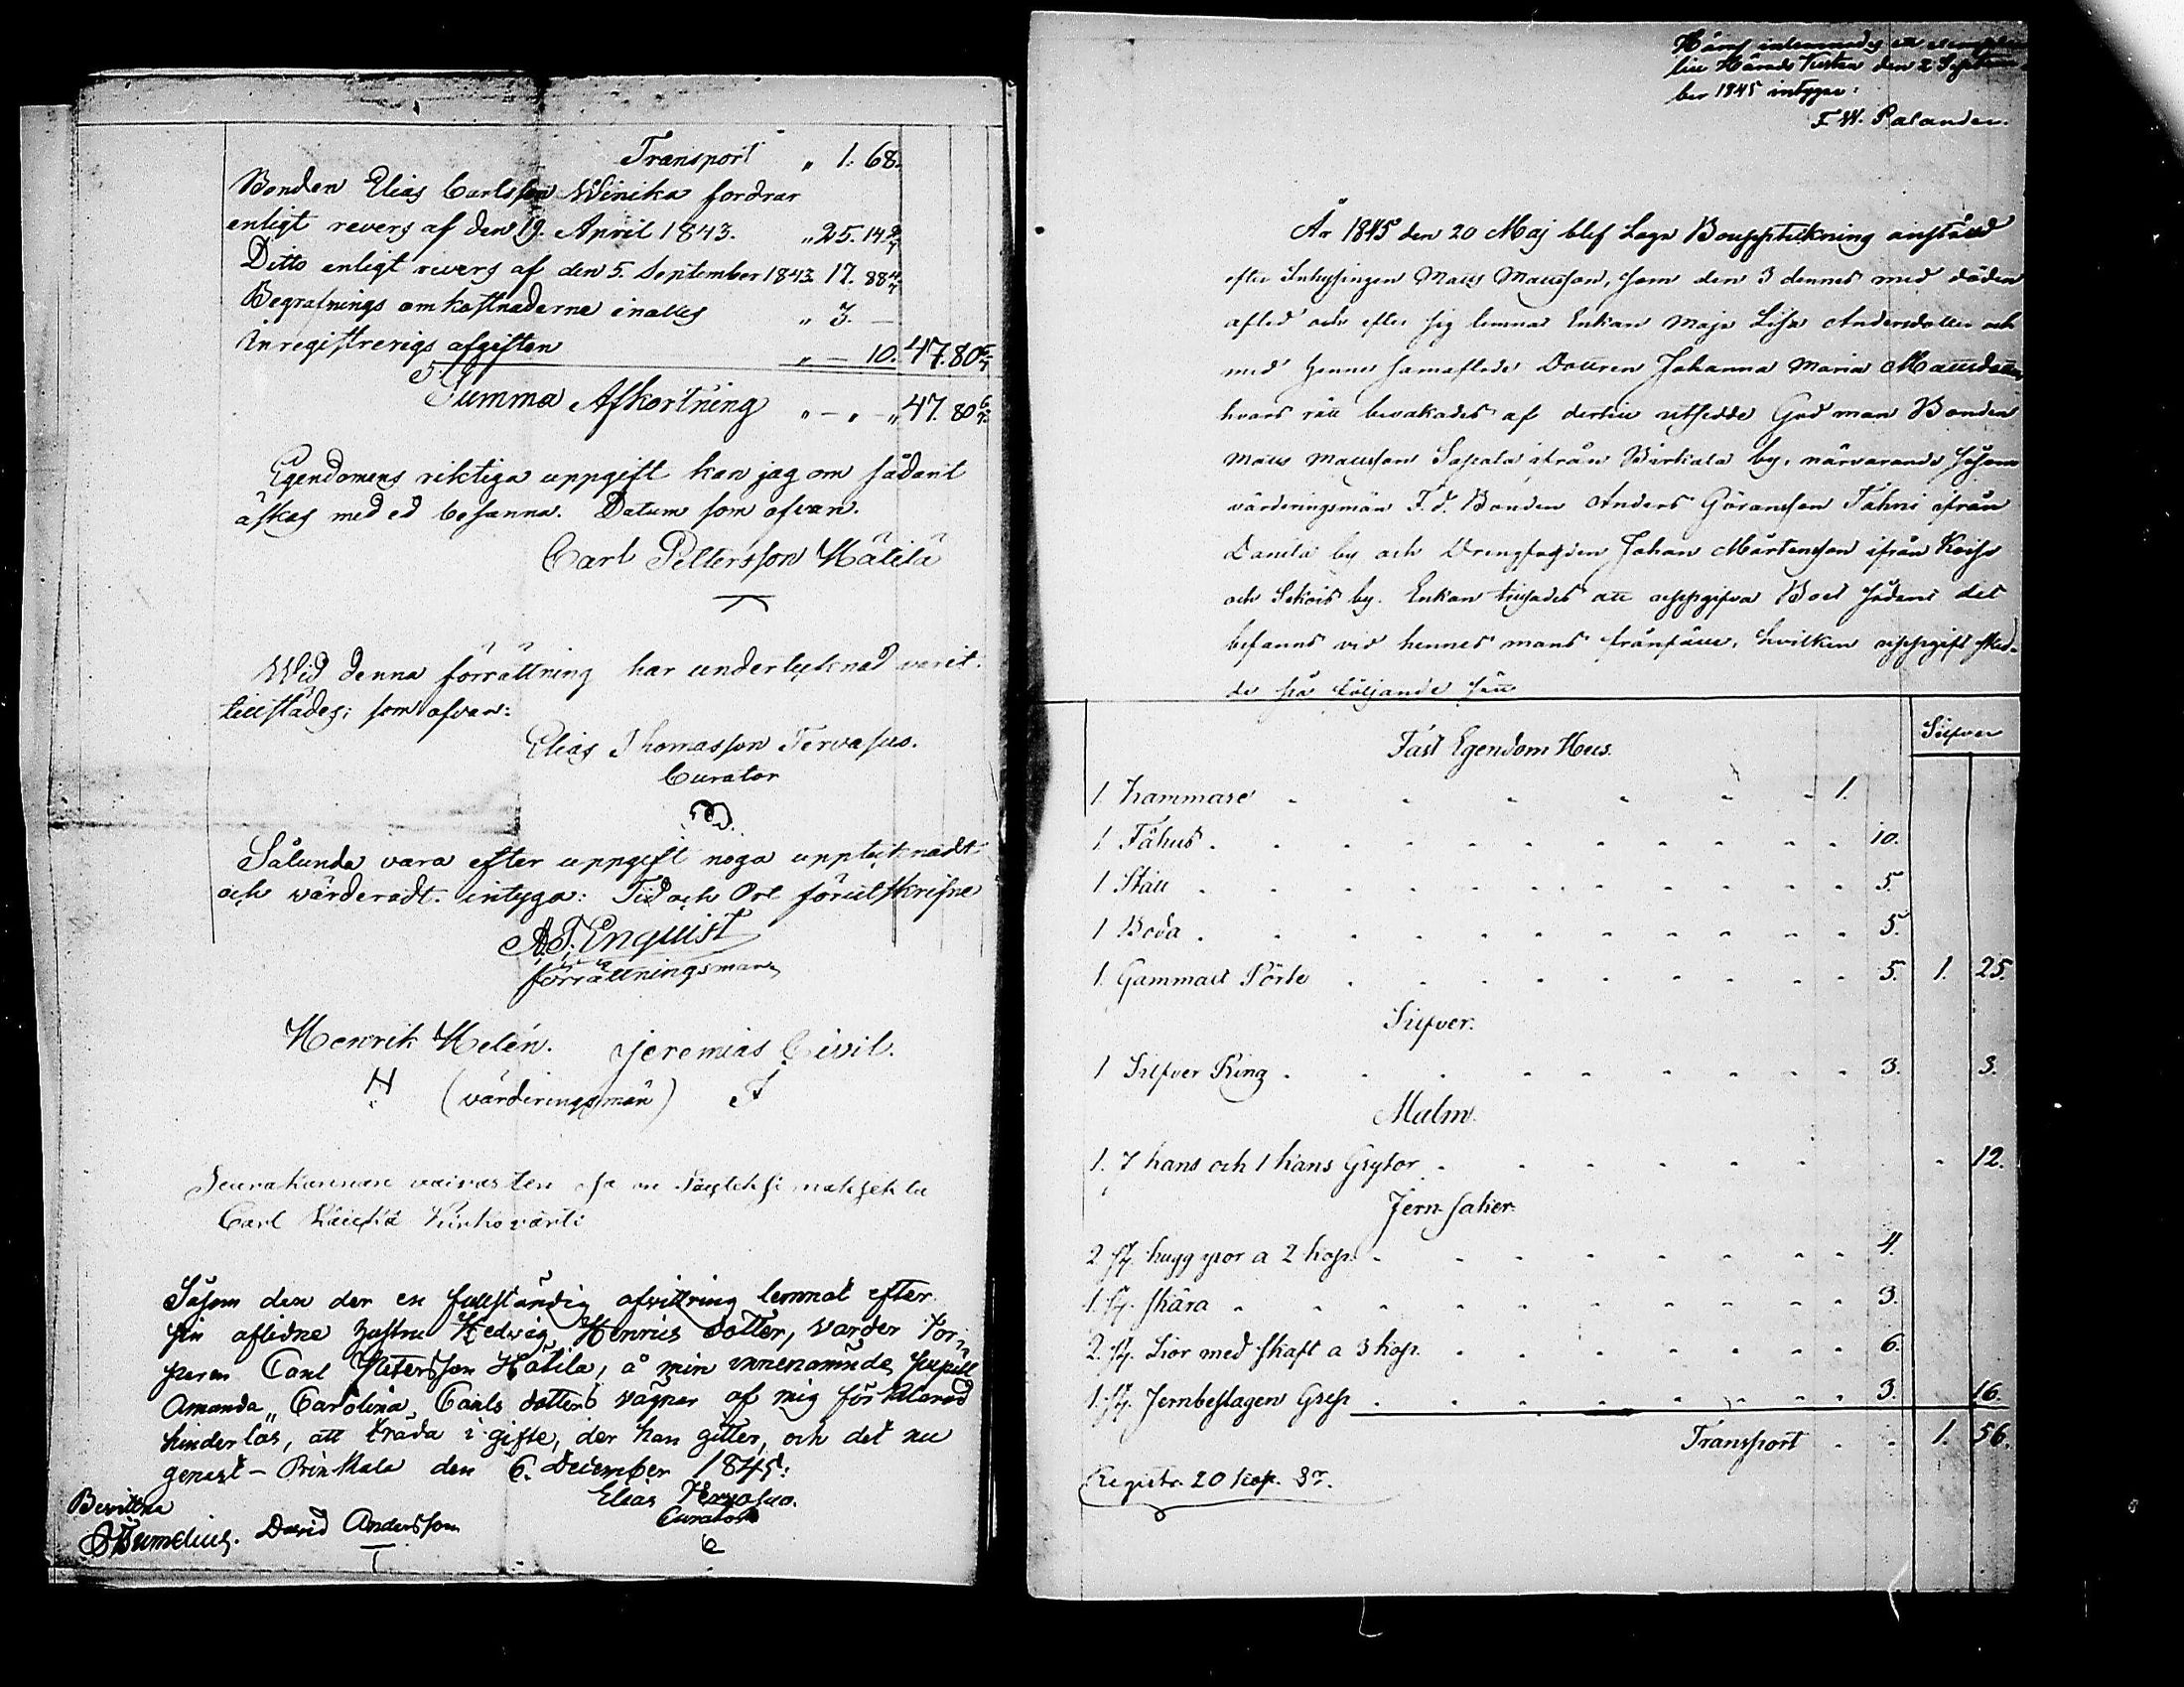 Transport " 1. 68.
Bonden Elias Carlsson Winika fordrar
enligt revers af den 19. April 1843. " 25. 14 2/7
Ditto enligt revers af den 5. September 1843. 17. 88 4/7
Begrafnings omkostnaderne inalles " 3. —
Inregistrerigs afgiften " — 10. 47. 80 6/7
Summa Afkortning " — " — " 47. 80 6/7
Egendomens riktiga uppgift kan jag om sådant
äskas med ed besanna. Datum som ofvan.
Carl Pettersson Hätilä
Wid denna förrättning har undertecknad varit
tillstädes; som ofvan:
Elias Thomasson Tervasuo.
Curator
Sålunda vara efter uppgift noga upptecknadt
och värderadt. intyga: Tid och Ort förutskrifne
A. F. Enquist
förrättningsman
Henrik Helén. Jeremias Civil.
H (värderingsmän)
Seurakunnan vaivasten on maksettu
Carl
Såsom den der en fullständig afvittring lemnat efter
sin aflidne hustru Hedvig Henrics dotter, varder Tor-
paren Carl Petersson Hätila, å min innenämnde pupill
Amanda Carolina Carls dotters vägnar af mig förklarad
hinderlös, att träda i gifte, der han gitter, och det nu
genast – Birkkala den 6. December 1845:
Elias Tervasuo.
Curator
Bevittna
David Andersson
Häraf inlemnades ett exemplar
till Härads Rätten den 2 Septem-
ber 1845 intygar:
F. W. Palander.
År 1845 den 20 Maj blef Laga Bouppteckning anstäld
efter Inhysingen Matts Mattsson, som den 3 dennes med döden
afled och efter sig lemnat Enkan Maja Lisa Andersdotter och
med henne samaflade Dottren Johanna Maria Mattsdotter
hvars rätt bevakades af dertill utsedde God man Bonden
Matts Mattsson Sapala ifrån Birkala by, närvarande såsom
värderingsmän F. d. Bonden Anders Göransson Tahni ifrån
Danila by och Drengsachen Johan Mårtensson ifrån
och by. Enkan tillsades att uppgifva Boet sådant det
befanns vid hennes mans frånfälle, hvilken uppgift sked-
de på följande sätt
Silfver
Fast Egendom Hus.
1. Kammare . . . . . . 1.
1 Fähus . . . . . . 10.
1 Stall . . . . . . 5.
1 Boda . . . . . . 5.
1. Gammalt Pörte . . . . . . 5. 1. 25.
Silfver.
1 Silfver Ring . . . . . . 3. 3.
Malm.
1. 7 kans och 1 kans Grytor . . . . . . 12.
Jern saker.
2 st. hugg yxor a 2 kop. . . . . . . 4.
1. st. skära . . . . . . 3.
2. st. Liar med skaft a 3 kop. . . . . . . 6.
1. st. Jernbeslagen Grep . . . . . . 3. 16.
Transport . . 1. 56.
Registr. 20 kop. Sr.